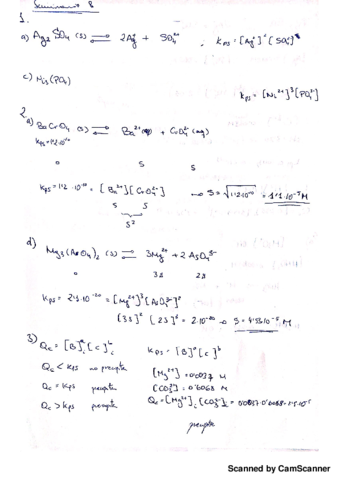 Seminario 8
1.
a) Ag2 SO4 (s) ⇌ 2Ag+ + SO4 , Kps = [Ag+]2 [SO4]
c) Ni3(PO4)
Kps = [Ni2+]3 [PO4
2.
a) BaCrO4 (s) ⇌ Ba2+ + CrO4 (aq)
Kps = 1'2 · 10-10
o s s
Kps = 1'2 · 10-10 = [Ba2+] [CrO4] → S = √1'2·10-10 = 1'1 · 10-5 M
s s
s2
d) Mg3(AsO4)2 (s) ⇌ 3Mg2+ + 2AsO4 3-
o 3s 2s
Kps = 2'1 · 10-20 = [Mg2+]3 [AsO4 3-]2
→ S = 4'53·10-5 M
3) Qc = [B]c [C]c b Kps = [B]a [C]b
Qc < Kps no precipita
[Mg2+] = 0'0037 M
Qc = Kps precipita
[CO3 2-] = 0'0068 M
Qc > Kps precipita
Qc = [Mg2+]c [CO3 2-]c = 0'0037·0'0068
precipita
Scanned by CamScanner